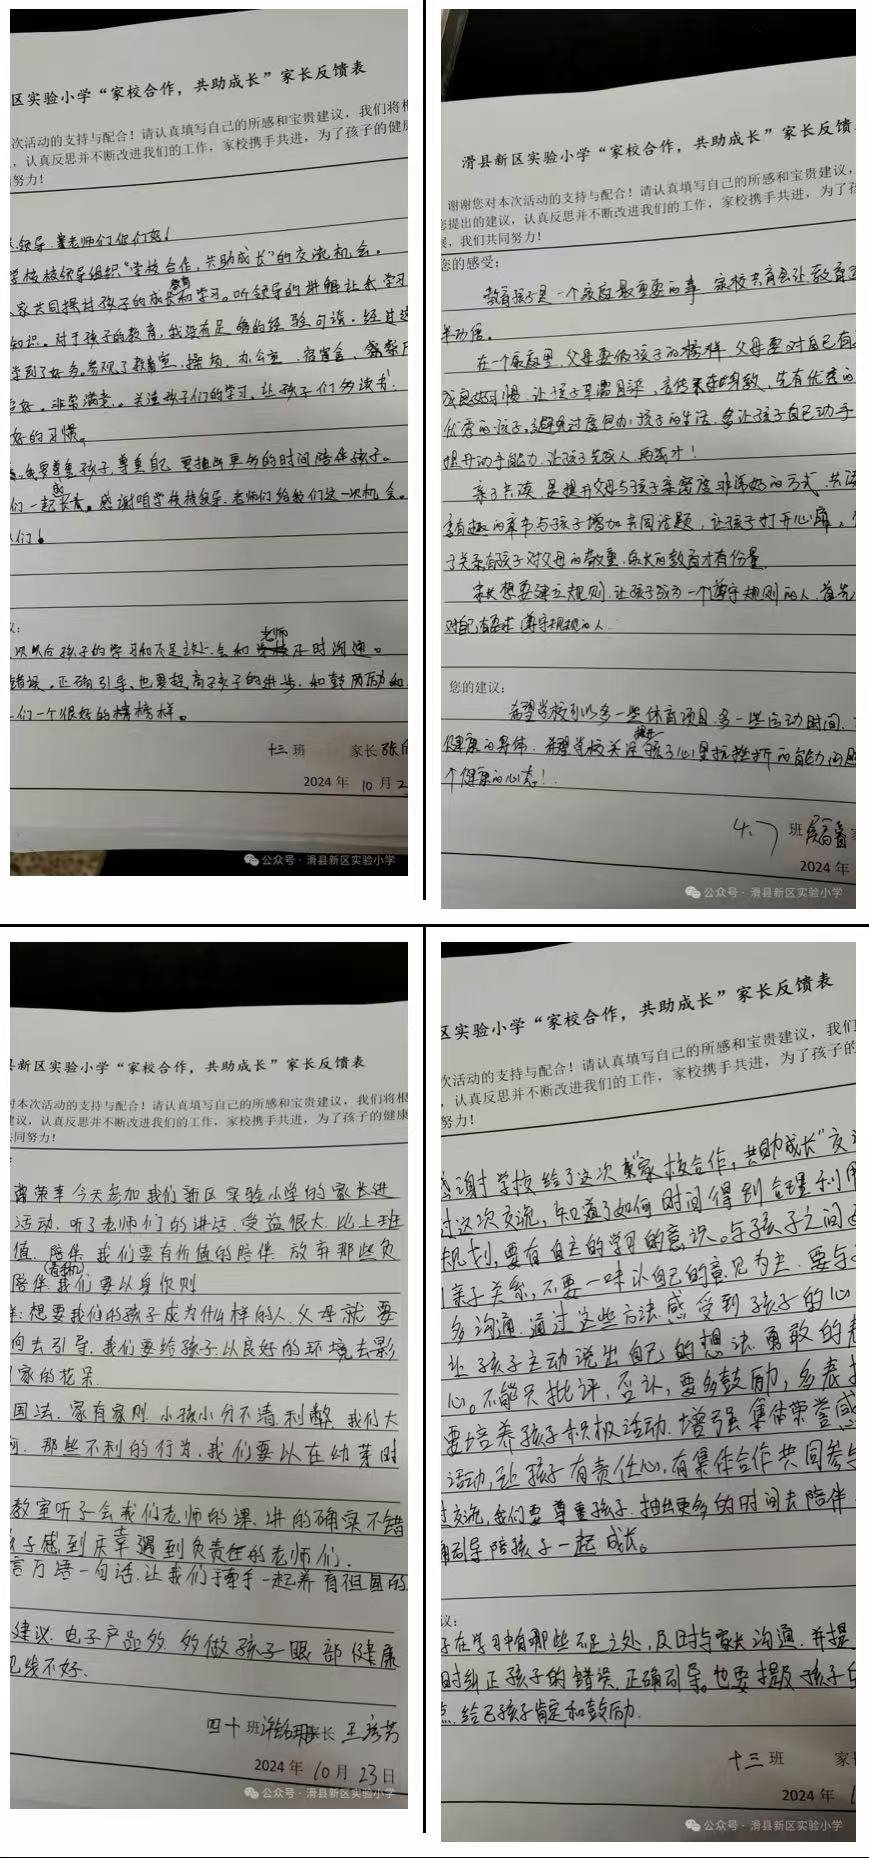 区实验小学“家校合作，共助成长”家长反馈表
次活动的支持与配合！请认真填写自己的所感和宝贵建议，我们将根
，认真反思并不断改进我们的工作，家校携手共进，为了孩子的健康
努力！
领导 老师们你们好！
学校校领导组织“学校合作，共助成长”的交流机会。
家共同探讨孩子的成长教育和学习。听领导的讲解让我学习
知识。对于孩子的教育，我没有足够的经验可谈，经过这
学到了好多。参观了教室，操场，办公室，宿舍，餐
好。非常满意。关注孩子们的学习，让孩子们多读书，
好的习惯。
我要尊重孩子，尊重自己 要抽出更多的时间陪伴孩子。
们一起成长。感谢咱学校校领导，老师们给我们这一次机会。
们！
孩子的学习和不足之处，会和老师及时沟通。
错误。正确引导，也要提高孩子的进步，和鼓励
们一个很好的榜样。
十三班 家长 张
2024年10月2
公众号·滑县新区实验小学
滑县新区实验小学“家校合作，共助成长”家长反馈
谢谢您对本次活动的支持与配合！请认真填写自己的所感和宝贵建议，
您提出的建议，认真反思并不断改进我们的工作，家校携手共进，为了孩
展，我们共同努力！
您的感受：
教育孩子是一个家庭最重要的事 家校共育会让教育
半功倍。
在一个家庭里，父母要做孩子的榜样 父母要对自己有
成良好习惯，让孩子早 言传 身教，先有优秀的
优秀的孩子，避免过度包办孩子的生活，多让孩子自己动手
提升动手能力，让孩子先成人 再成才！
亲子共读，是提升父母与孩子亲密度非常好的方式 共读
有趣的章节与孩子增加共同话题，让孩子打开心扉，
子关系有孩子对父母的敬重，家长的教育才有份量
家长想要建立规则，让孩子成为一个遵守规则的人，首先
对自己有要求 遵守规则的人
您的建议：
希望学校可以多一些体育项目，多一些运动时间，
健康的身体，希望学校关注提升孩子心里抗挫折的能力
个健康的心态！
4.7 班
2024年
公众号·滑县新区实验小学
县新区实验小学“家校合作，共助成长”家长反馈表
对本次活动的支持与配合！请认真填写自己的所感和宝贵建议，我们将根
建议，认真反思并不断改进我们的工作，家校携手共进，为了孩子的健康
同努力！
荣幸今天参加我们新区实验小学的家长进
活动，听了老师们的讲话，受益很大，比上班
值，陪伴，我们要有价值的陪伴，放弃那些负
陪伴（看手机）我们要以身作则
样：想要我们的孩子成为什么样的人，父母就要
向去引导，我们要给孩子以良好的环境去影
家的花朵
国法，家有家则，小孩小分不清利弊，我们大
，那些不利的行为，我们要以在幼芽时
教室听了会我们老师的课，讲的确实不错
孩子感到庆幸遇到负责任的老师们，
言万语一句话，让我们手牵手一起养育祖国的
建议，电子产品多，多做孩子眼部健康
视线不好，
四十班 家长 王
2024年10月23日
公众号·滑县新区实验小学
区实验小学“家校合作，共助成长”家长反馈表
次活动的支持与配合！请认真填写自己的所感和宝贵建议，我们
，认真反思并不断改进我们的工作，家校携手共进，为了孩子的
努力！
感谢学校给了这次“家校合作，共助成长”交流
过这次交流，知道了如何时间得到合理利用
规划，要有自主的学习的意识。与孩子之间
亲子关系，不要一味以自己的意见为主，要与
多沟通，通过这些方法感受到孩子的心
让孩子主动说出自己的想法，勇敢的表
心。不能只批评，否认，要多鼓励，多表扬
要培养孩子积极活动，增强集体荣誉感
活动，让孩子有责任心，有集体合作共同参与
过交流，我们要尊重孩子，抽出更多的时间去陪伴
确引导陪孩子一起成长。
议：
子在学习中有哪些不足之处，及时与家长沟通，并提
时纠正孩子的错误，正确引导。也要提及孩子的
点，给已孩子肯定和鼓励.
十三班 家
2024年1
公众号·滑县新区实验小学